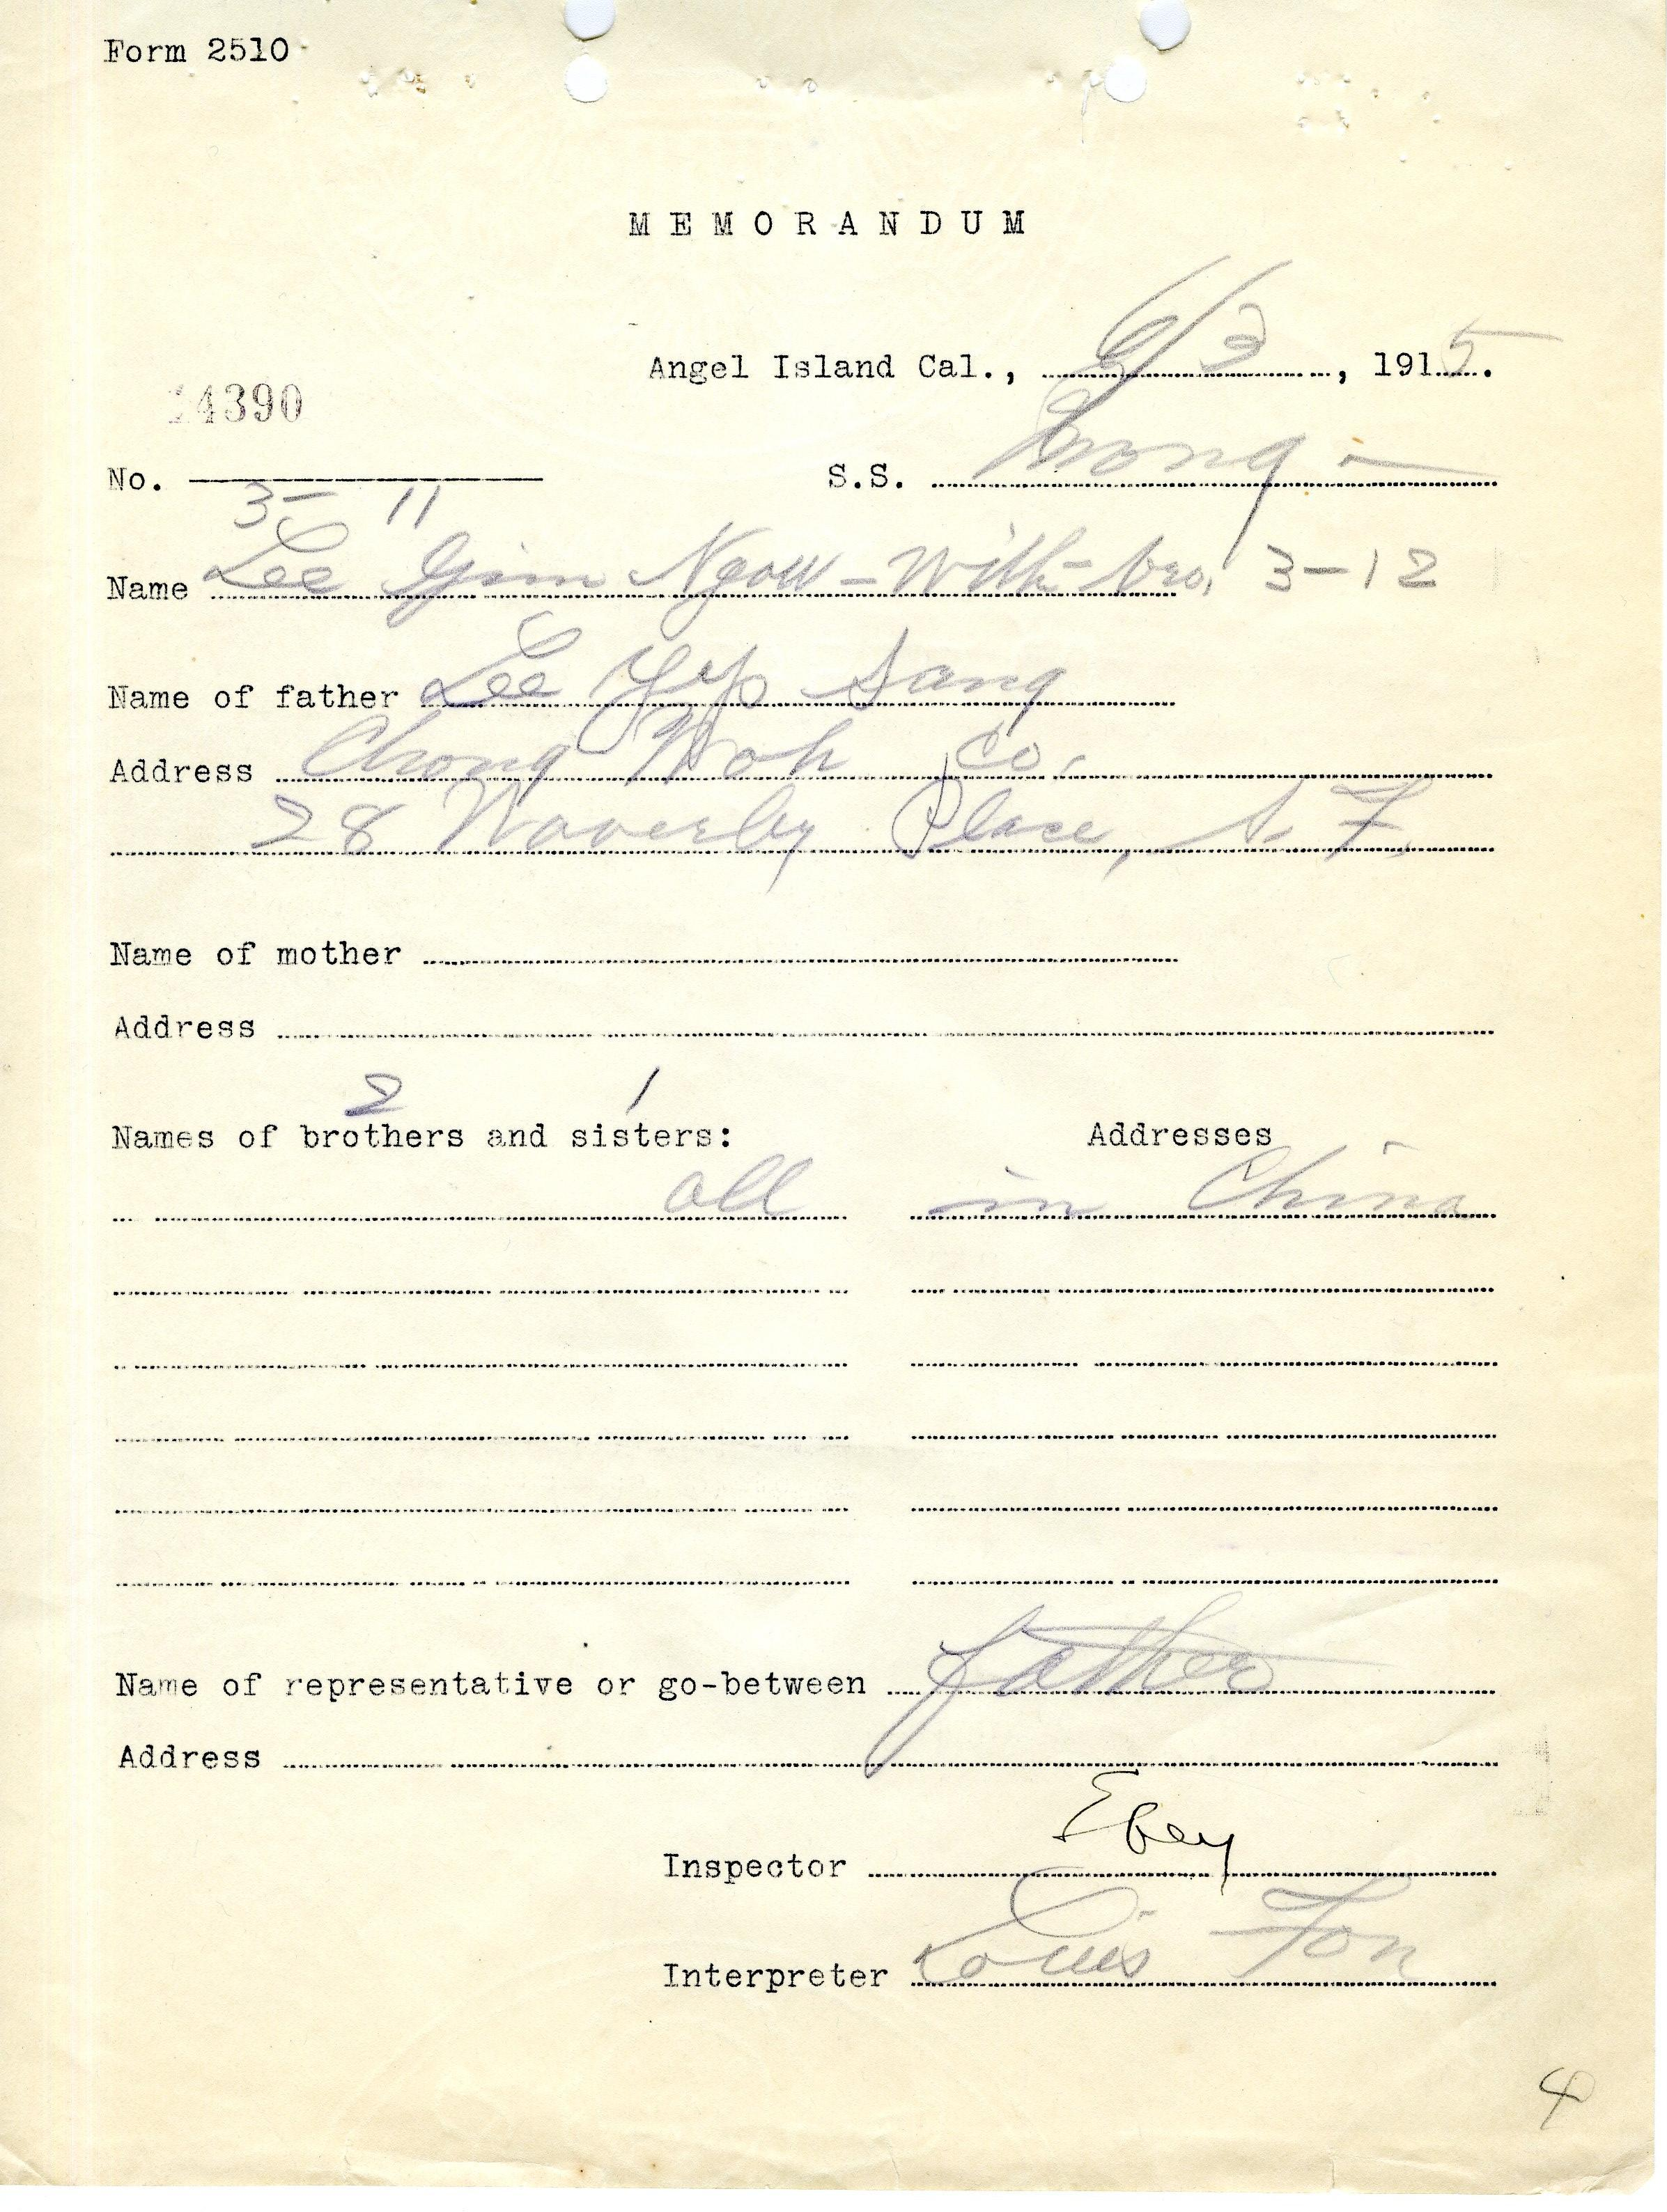 Form 2510
MEMORANDUM
Angel Island Cal., 6/3, 1915.
14390
No.
S.S. Mong-
3-11
Name Lee Gim Ngow - With bro. 3-12
Name of father Lee Yep Sang
Address Chong Woh Co.
28 Waverly Place, S.F.
Name of mother
Address
2 1
Names of brothers and sisters: Addresses
all in China
Name of representative or go-between Father
Address
Inspector Ebey
Interpreter Louis Fon
4